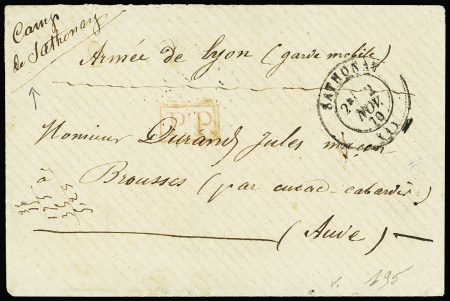 Camp
de Sathonay
Armée de Lyon (garde mobile)
SATHONAY
2
NOV.
70
P.P.
Monsieur Durand Jules maçon
Brousses (par cuxac-cabardès)
(Aude)
195